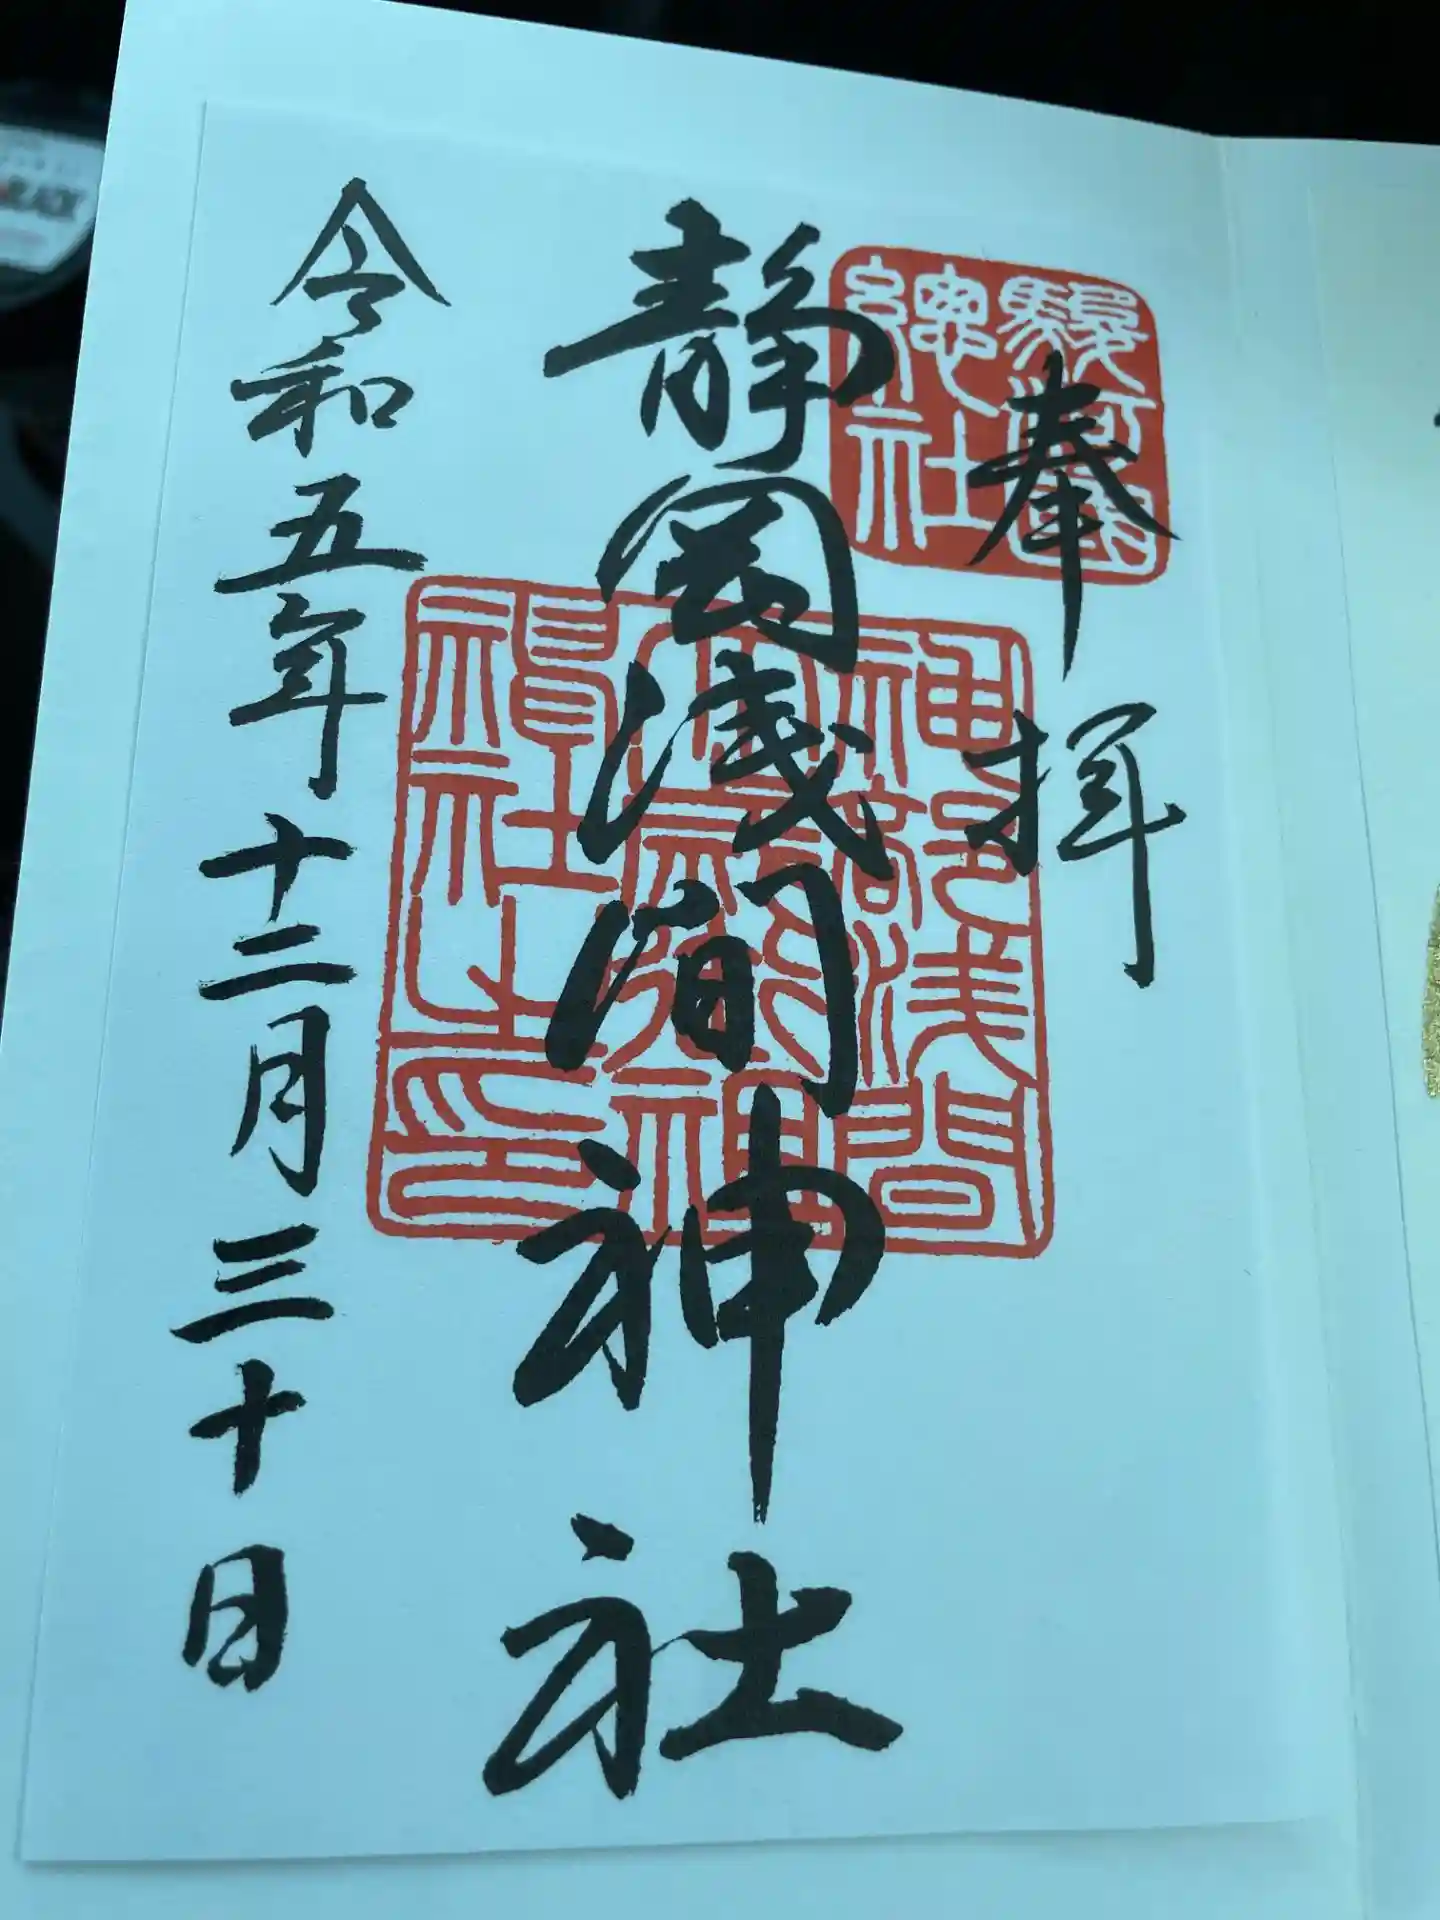 奉拝
駿河國
總社
静岡浅間神社
神部浅間
大歳御祖
神社之印
令和五年十二月三十日